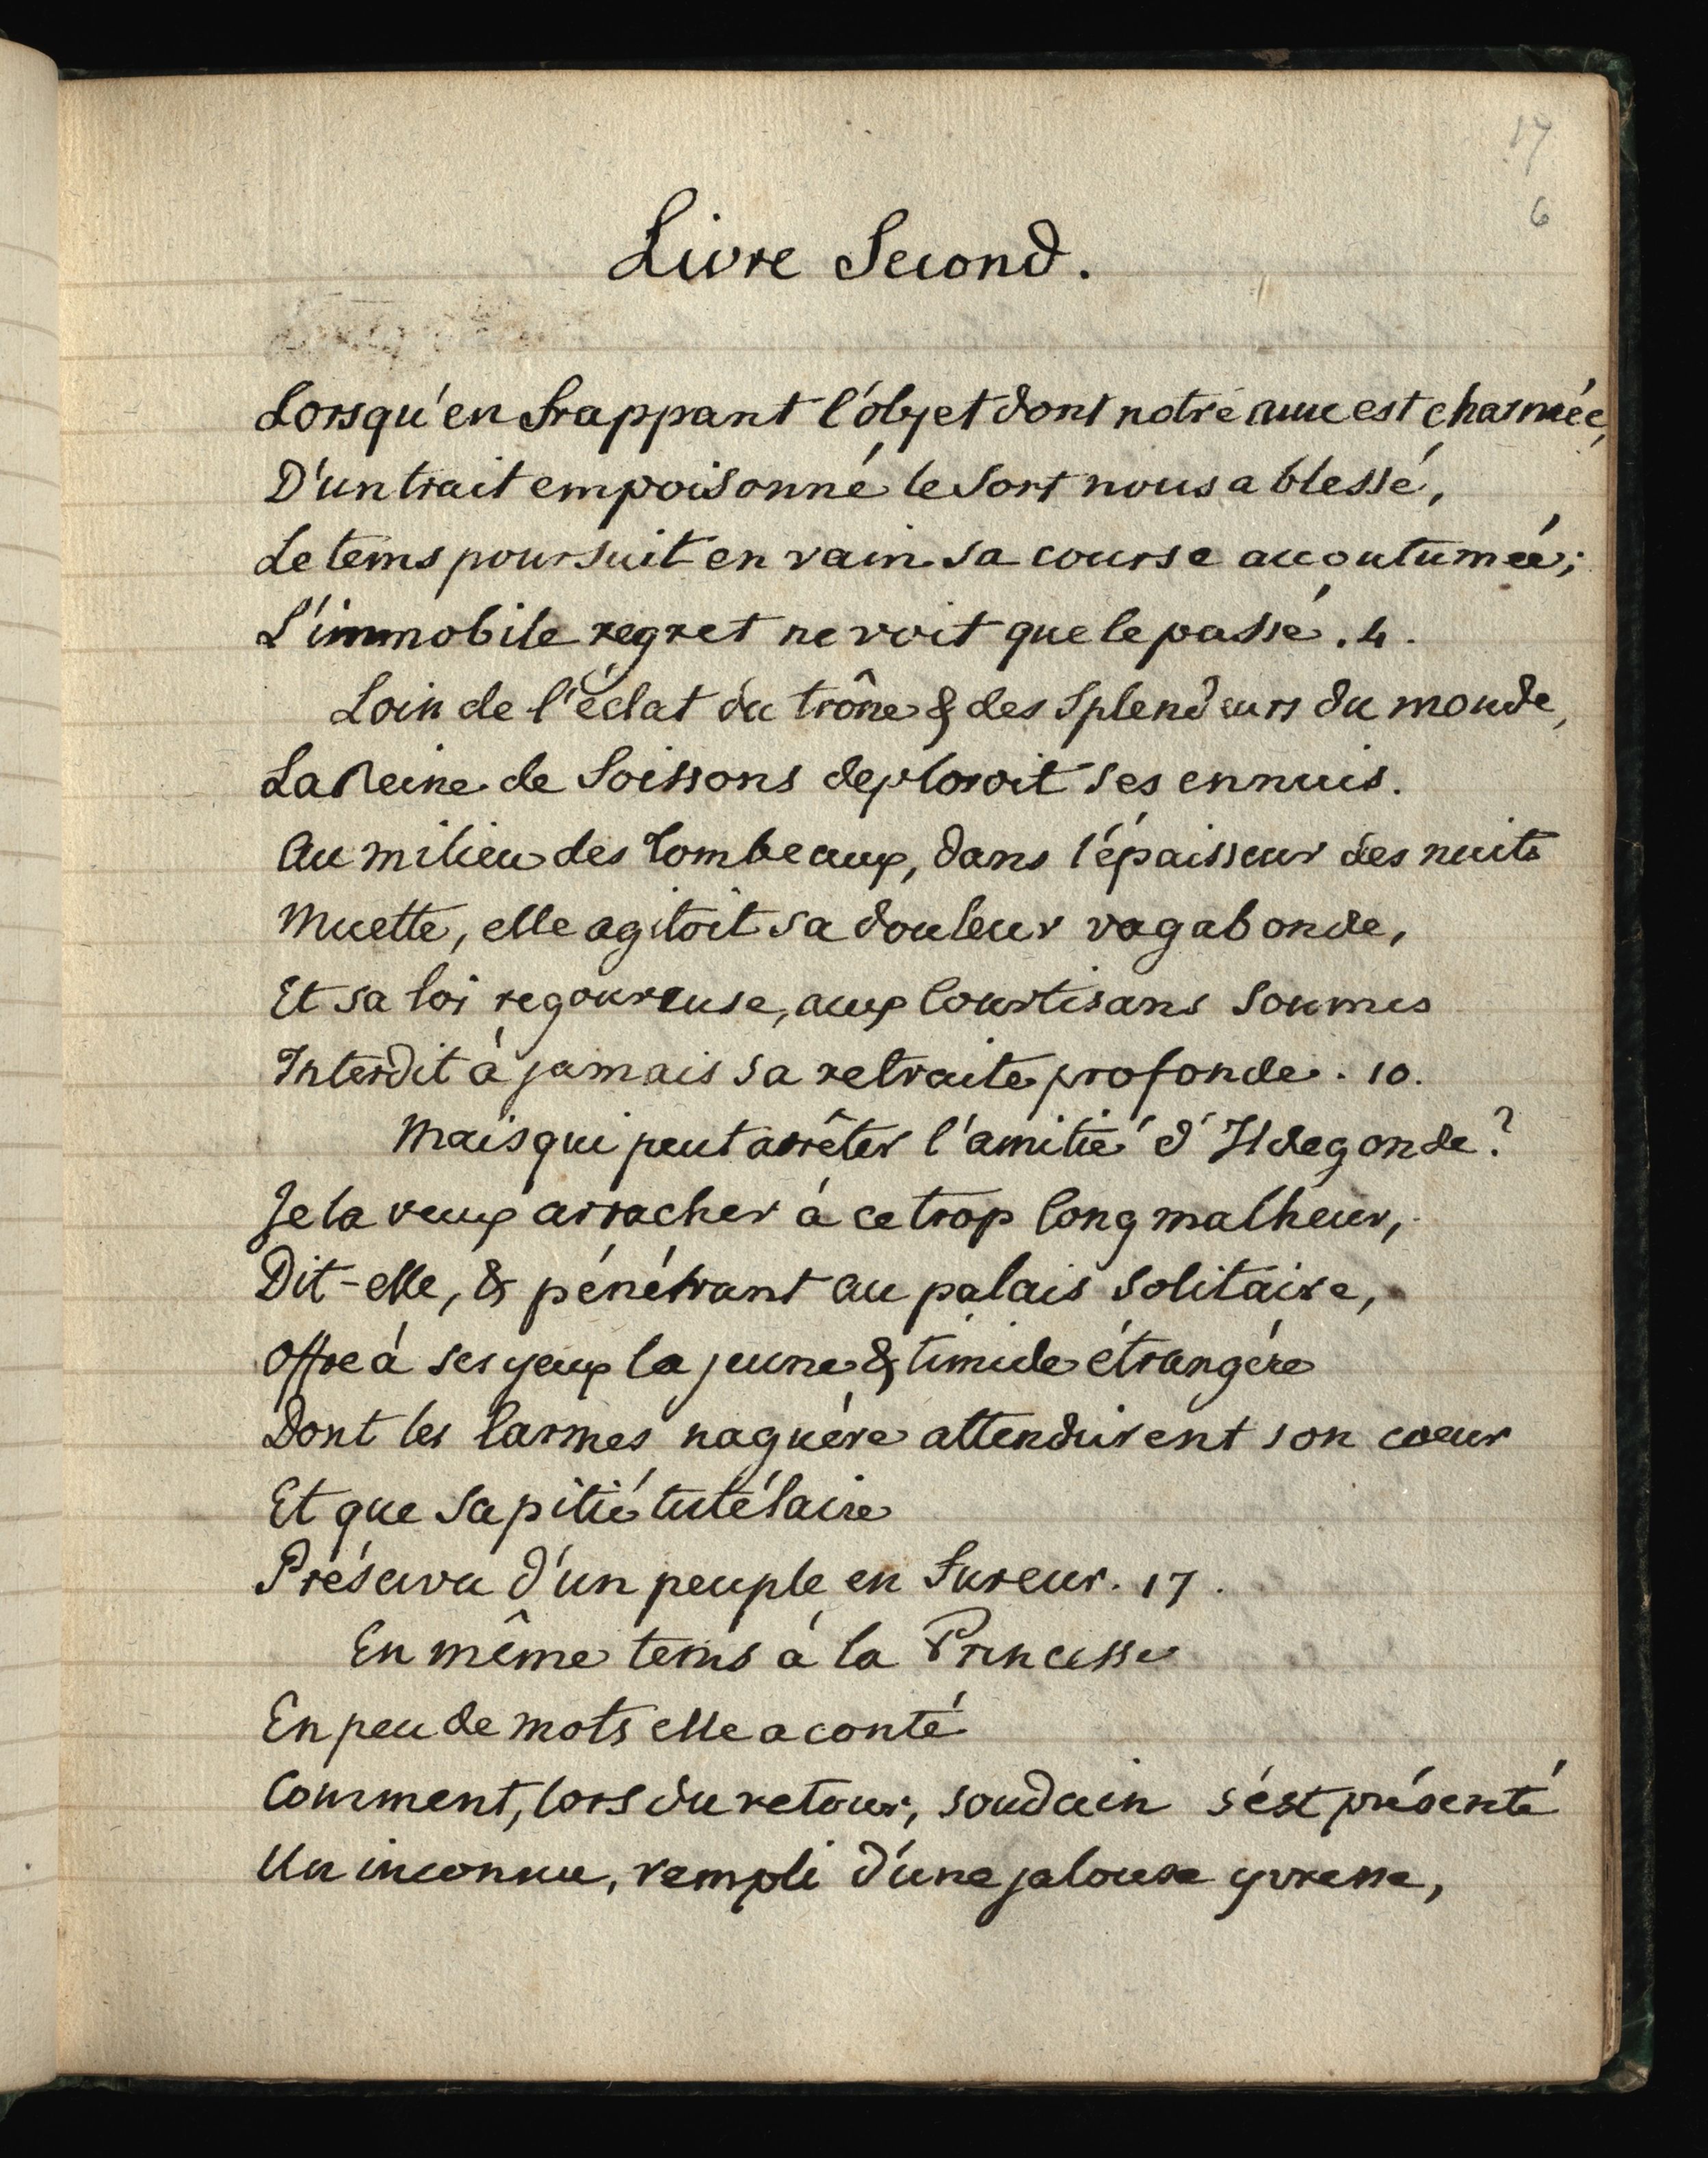 17
6
Livre Second.
Lorsqu'en frappant l'objet dont notre ame est charmée,
D'un trait empoisonné le sort nous a blessé,
Le tems poursuit en vain sa course accoutumée;
L'immobile regret ne voit que le passé. 4.
Loin de l'éclat du trône & des splendeurs du monde,
La Reine de Soissons deploroit ses ennuis.
Au milieu des tombeaux, dans l'épaisseur des nuits
Muette, elle agitoit sa douleur vagabonde,
Et sa loi regoureuse, aux Courtisans soumis
Interdit à jamais sa retraite profonde. 10.
Mais qui peut arrêter l'amitié d'Ildegonde?
Je la veux arracher à ce trop long malheur,
Dit-elle, & pénétrant au palais solitaire,
Offre à ses yeux la jeune & timide étrangère
Dont les larmes naguère attendrirent son cœur
Et que sa pitié tutélaire
Préserva d'un peuple en fureur. 17.
En même tems à la Princesse
En peu de mots elle a conté
Comment, lors du retour, soudain s'est présenté
Un inconnu, rempli d'une jalouse yvresse,